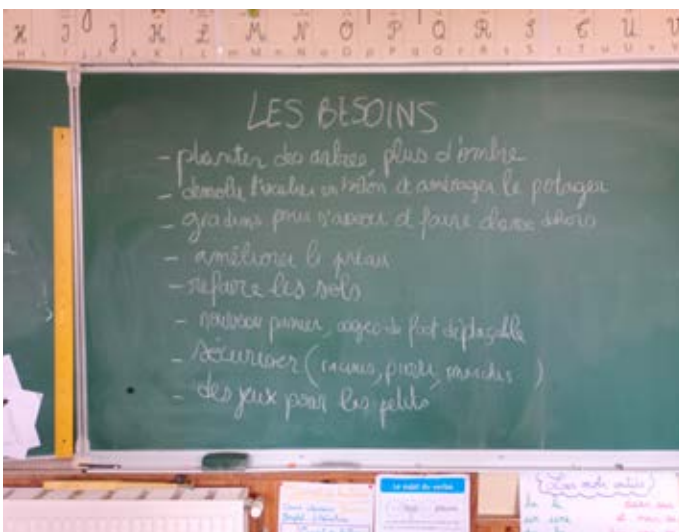 H I J K L M N O P Q R S T U V
LES BESOINS
- planter des arbres, plus d'ombre
- démolir l'escalier en béton et aménager le potager
- gradins pour s'asseoir et faire classe dehors
- améliorer le préau
- refaire les sols
- nouveau panier, cages de foot déplaçable
- sécuriser (racines, , marches )
- des jeux pour les petits
Le sujet du verbe
Les mots outils